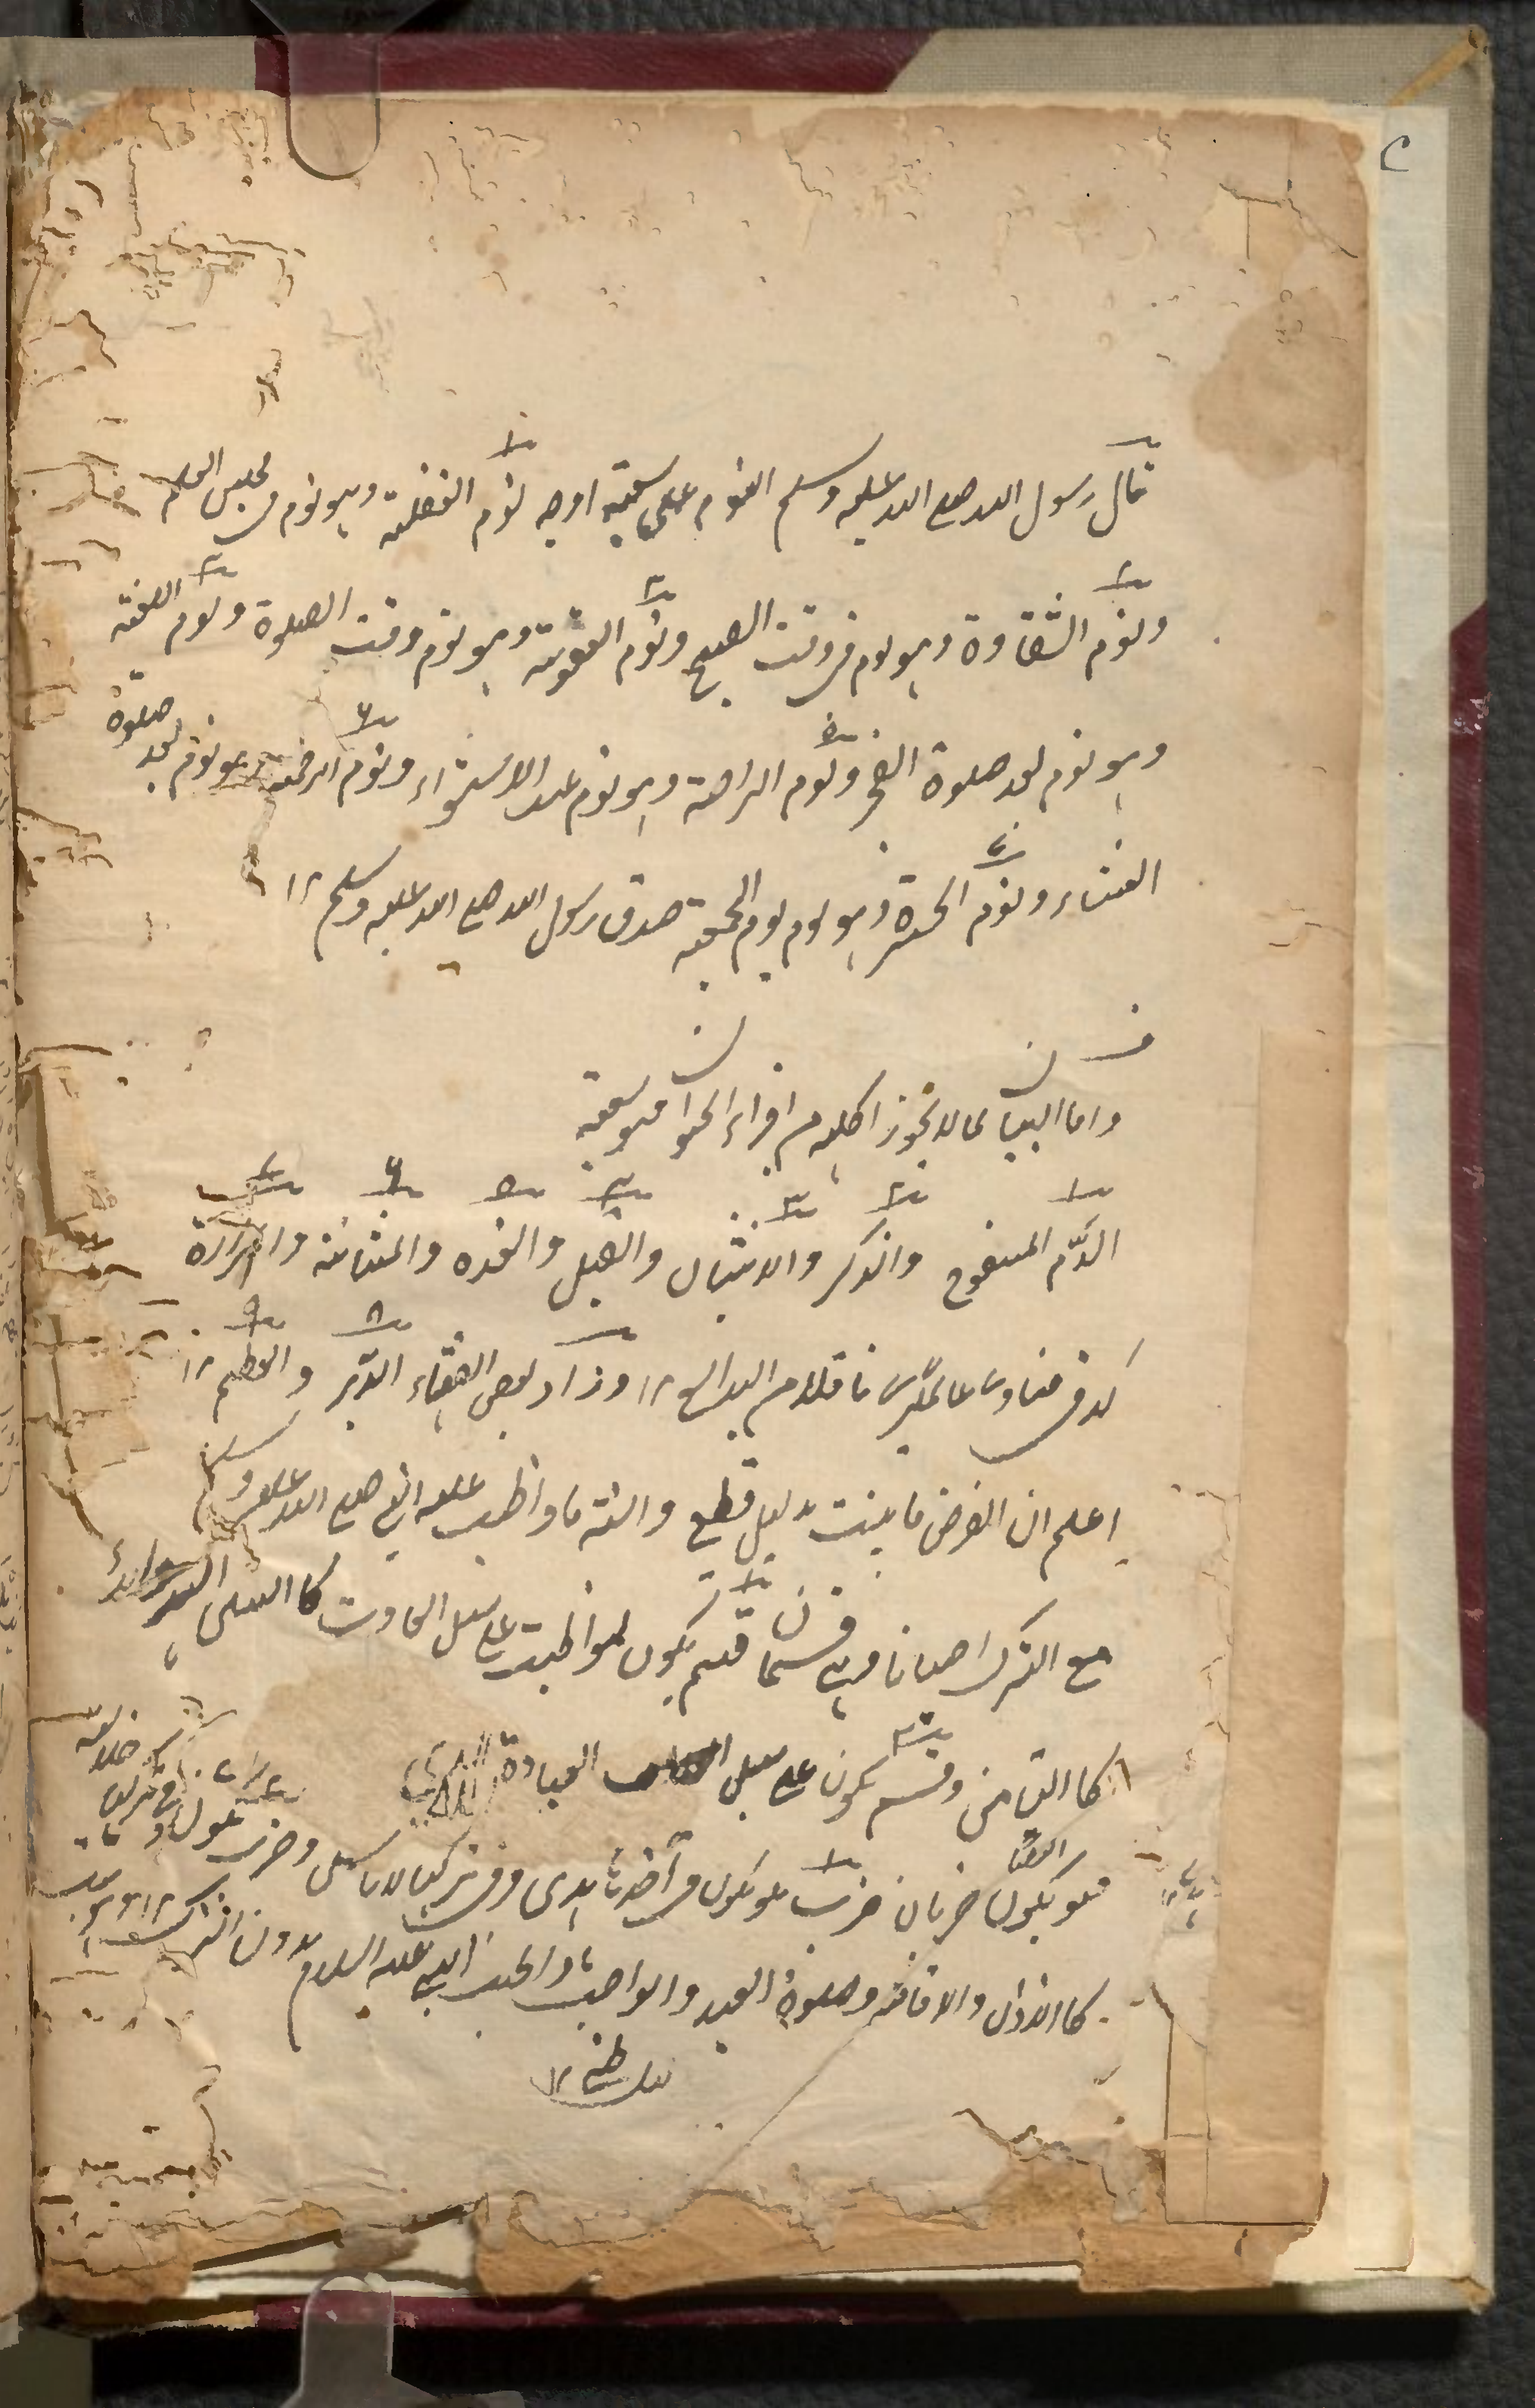 قال رسول الله صلى الله عليه وسلم النوم على سبعة اوجه نوم الغفلة وهو نوم فى مجلس العلم
ونوم الشقاوة وهو نوم فى وقت الصبح ونوم العقوبة وهو نوم وقت الصلوة ونوم اللعنة
وهو نوم بعد صلوة الفجر ونوم الراحة وهو نوم عند الاستواء ونوم الرخصة وهو نوم بعد صلوة
العشاء ونوم الحسرة وهو نوم يوم الجمعة صدق رسول الله صلى الله عليه وسلم ١٢
واما البيان لما لا يجوز اكله من اجزاء الحيوان فهو سبعة
الدّم المسفوح والذكر والانثيان والقبل والغدة والمثانة والمرارة
كذا فى فتاوى عالمگيرى ناقلا من البدائع ١٢ وزاد بعض الفقهاء الدّبر والعظم ١٢
اعلم ان الفرض ما يثبت بدليل قطعى والسنة ما واظب عليه النبى صلى الله عليه وسلم
مع الترك احيانا وهى قسمان قسم يكون المواظبت على سبيل العادت كا
كا التيامن وقسم يكون على سبيل العبادة
فهو يكون ايضًا ضربان ضرب هو يكون فى اخذ ثابدى وفى تركها لا باس وضرب يكون
كا الاذان والاقامة وصلوة العيد والواجب ما واظب النبى عليه السلام بدون الترك